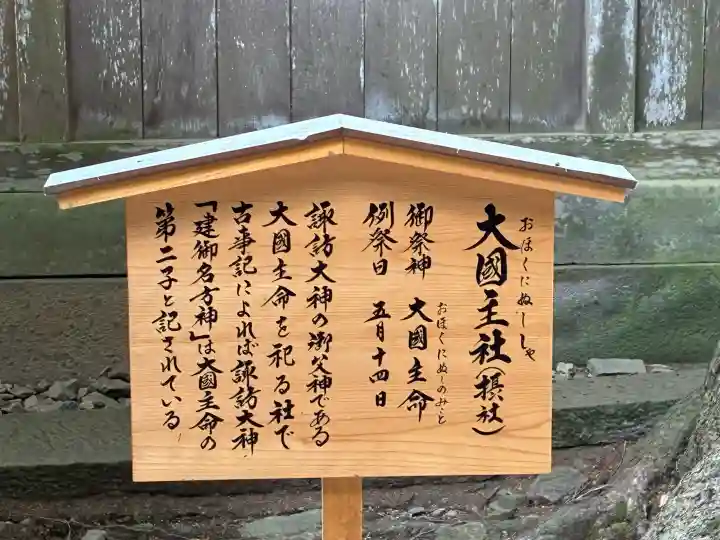 おほくにぬししゃ
大國主社(摂社)
おほくにぬしのみこと
御祭神 大國主命
例祭日 五月十四日
諏訪大神の御父神である
大國主命を祀る社で
古事記によれば諏訪大神
「建御名方神」は大國主命の
第二子と記されている